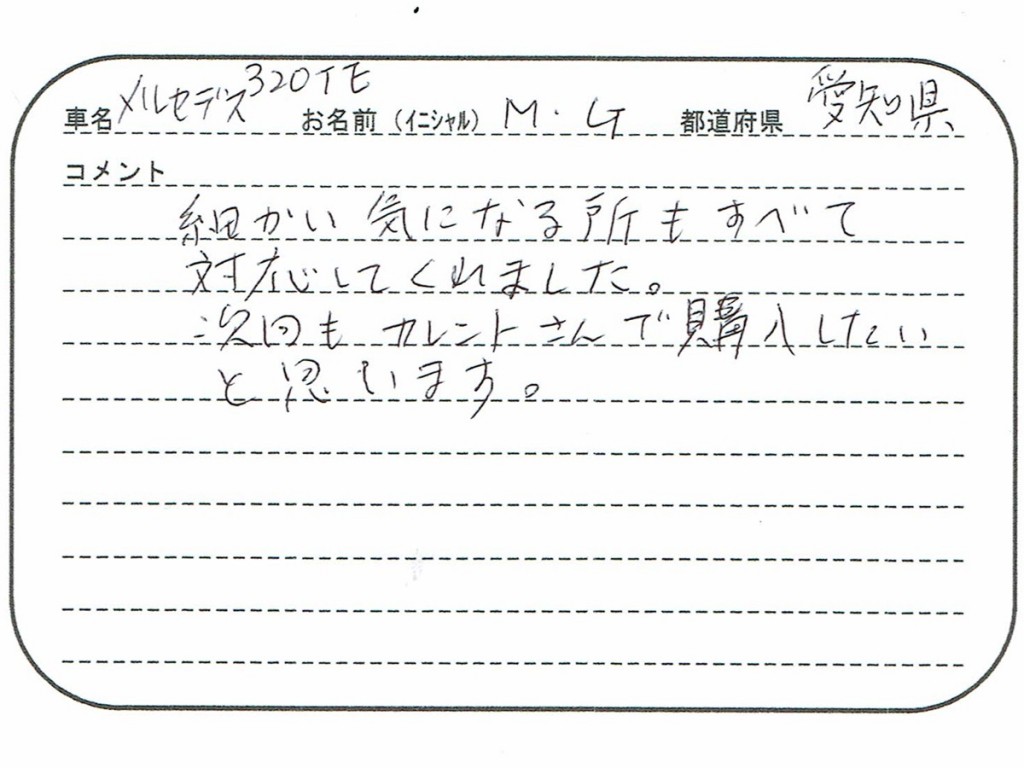 車名 メルセデス320TE お名前（イニシャル） M・G 都道府県 愛知県
コメント
細かい気になる所もすべて
対応してくれました。
次回もカレントさんで購入したい
と思います。